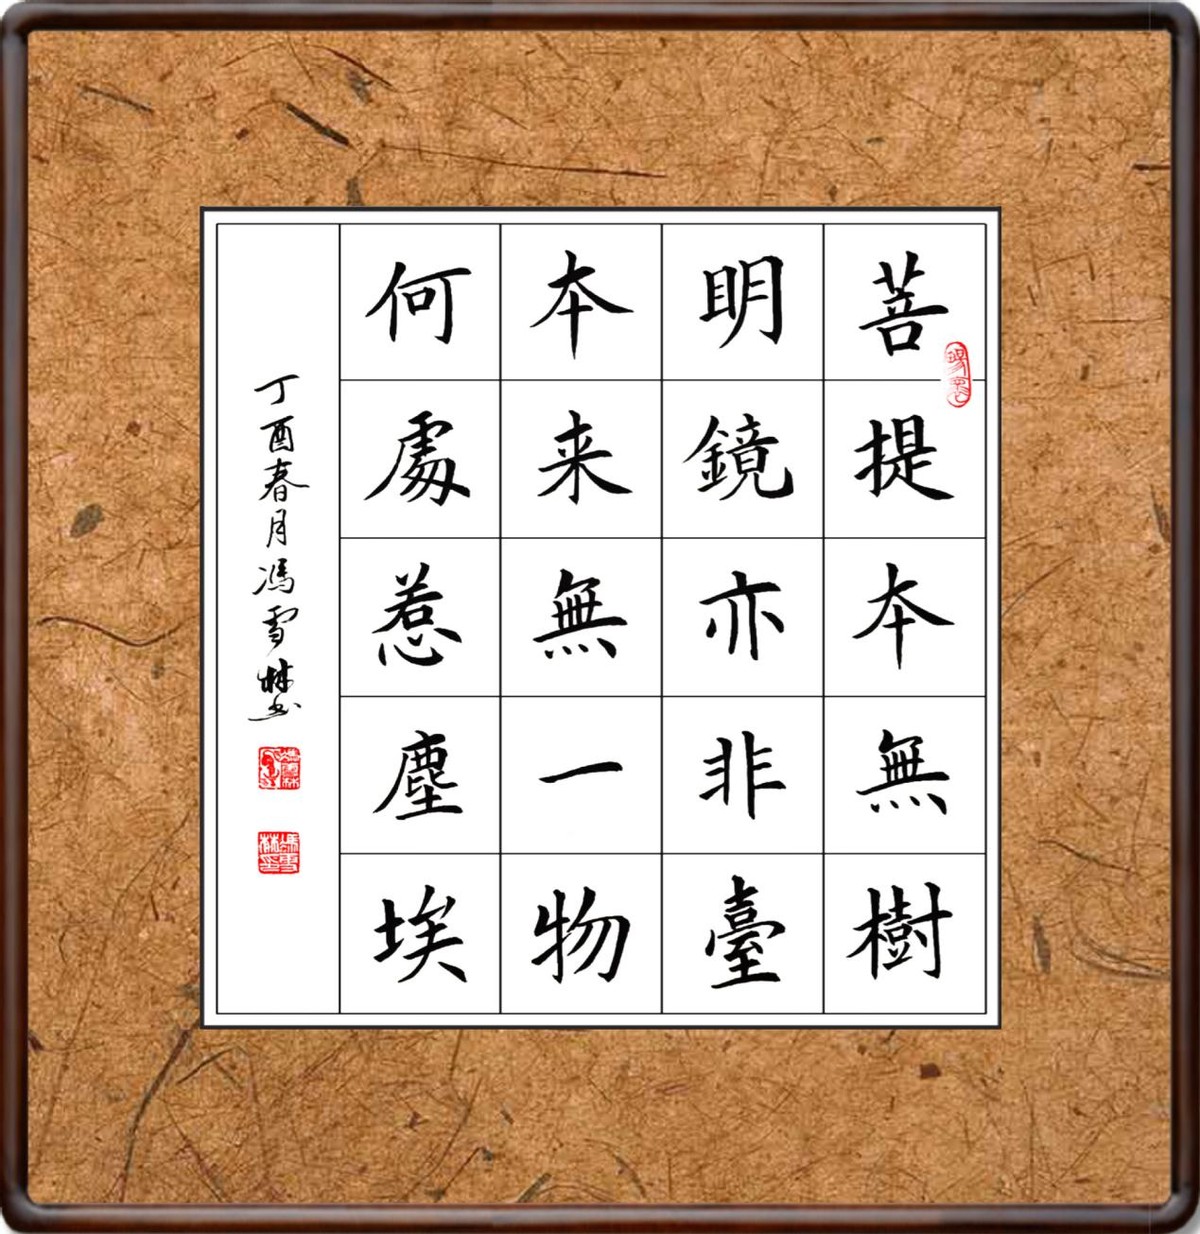 菩提本無樹
明鏡亦非臺
本来無一物
何處惹塵埃
丁酉春月馮雪林書